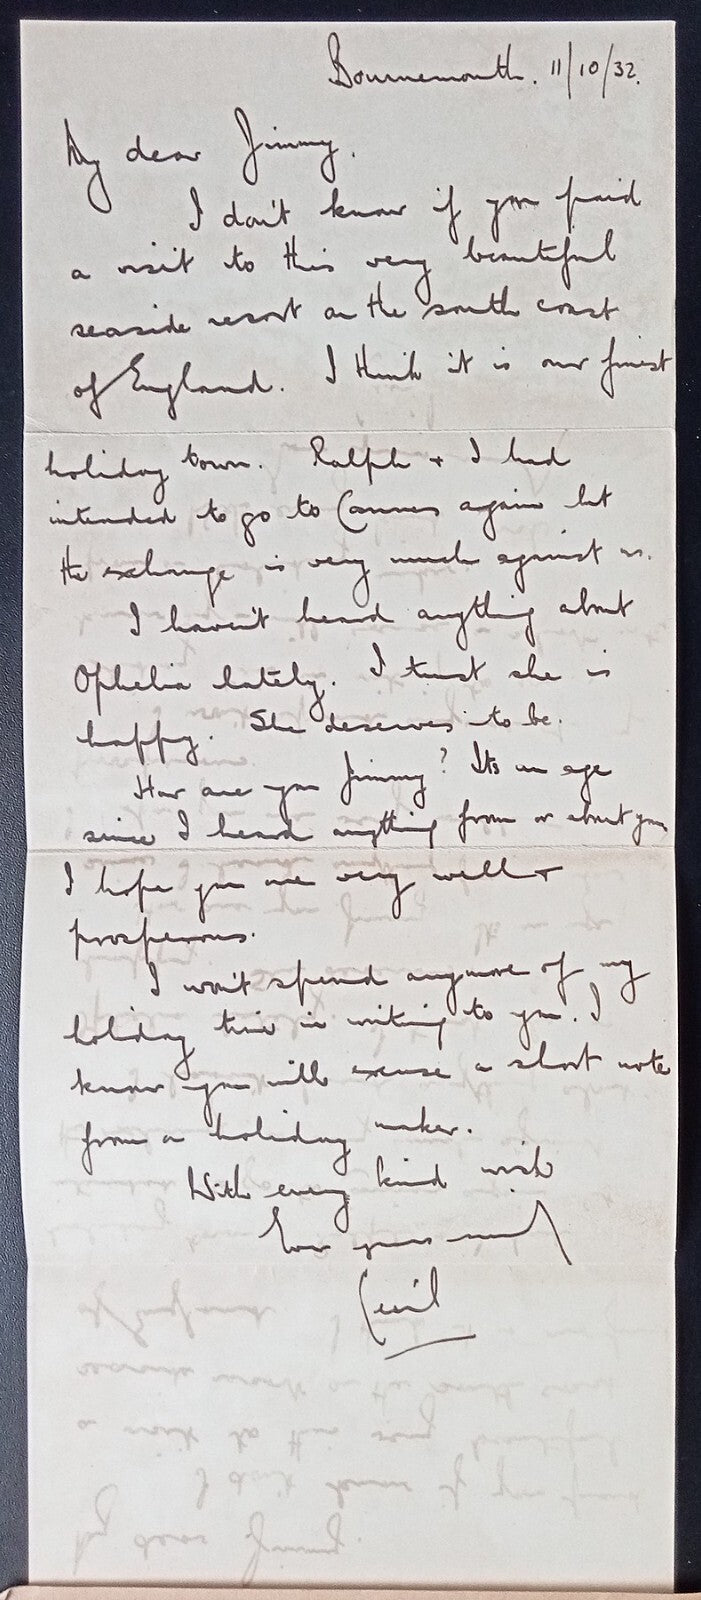 Bournemouth. 11/10/32.
My dear Jimmy.
I don't know if you paid
a visit to this very beautiful
seaside resort on the south coast
of England. I think it is our finest
holiday town. Ralph + I had
intended to go to Cannes again but
the exchange is very much against us.
I haven't heard anything about
Ophelia lately. I trust she is
happy. She deserves to be.
How are you Jimmy? Its an age
since I heard anything from or about you
I hope you are very well +
prosperous.
I won't spend anymore of my
holiday time in writing to you. I
know you will excuse a short note
from a holiday maker.
With every kind wish
Ever yours
Cecil